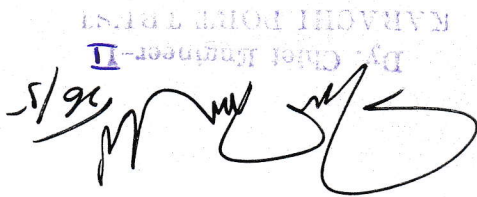 26/5
Dy: Chief Engineer-II
KARACHI PORT TRUST